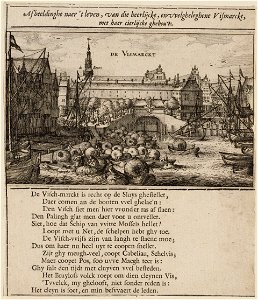 Afbeeldinghe naer 't leven, van die heerlijcke, en welgheleghene Vismarckt,
met haer cierlijcke ghebouw.
DE VISMARCKT
De Visch-marckt is recht op de Sluys ghestellet,
Daer comen an de booten veel ghelaen:
Den Visch siet men hier wonder na af slaen:
Den Palingh glat men daer voor u ontvellet.
Siet, hoe dat Schip van vytte Mossels hellet!
Loopt met u Net, de schelpen liebt ghy toe.
De Visch-wijfs zijn van langh te staene moe;
Dus om haer nu heel uyt te coopen snellet.
Zijt ghy mongh-veel, coopt Cabeliau, Schelvis;
Maer coopet Pos, soo uwe Maegh teer is:
Ghy sult een tijdt met cluyven vvel besteden.
Het Bruyloft volck roept om dien cleynen Vis,
'Tvvelck, my ghelooft, niet sonder reden is:
Het cleyn is soet, en min beswaert de leden.